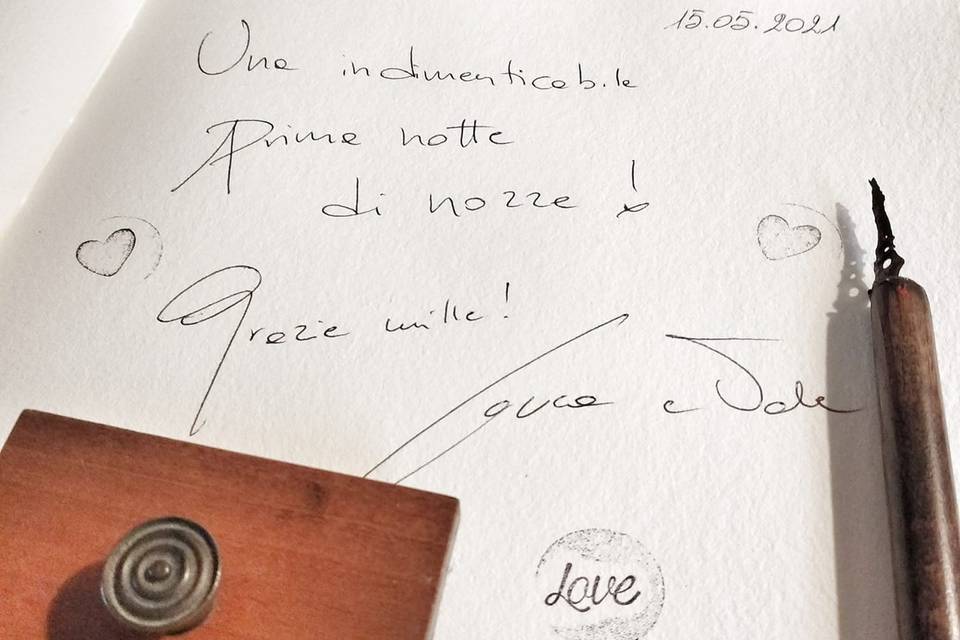 15.05.2021
Una indimenticabile
Prima notte
di nozze!
Grazie mille!
Laura e Vale
Love